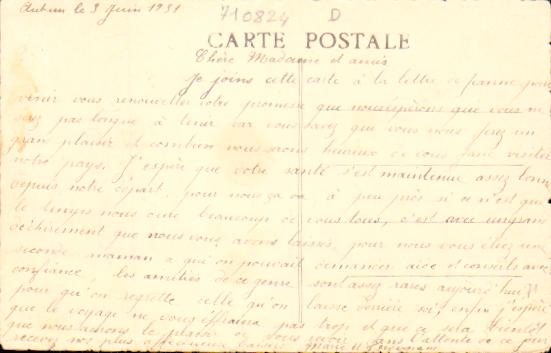 Autun le 3 Juin 1931
710824 D
CARTE POSTALE
Chère Madame et amis
Je joins cette carte à la lettre de Jeanne pour
venir vous renouveller votre promesse que nous espérons que vous ne
serez pas longue à tenir car vous savez que vous nous ferez un
gran plaisir et combien nous serons heureux de vous faire visiter
notre pays. J'espère que votre santé s'est maintenue assez bonne
depuis notre départ, pour nous ça va, à peu près si ce n'est que
le temps nous dure beaucoup de vous tous, c'est avec un grand
déchirement que nous vous avons laissés, pour nous vous étiez une
seconde maman a qui on pouvait demander aide et conseils avec
confiance, les amitiés de ce genre sont assez rares aujourd'hui
pour qu'on regrette celle qu'on laisse derrière soi, enfin j'espère
que le voyage ne vous effraira pas trop et que ce sera bientôt
que nous aurons le plaisir vous avoir dans l'attente de ce jour
recevez nos plus affectueux baisers Marie et